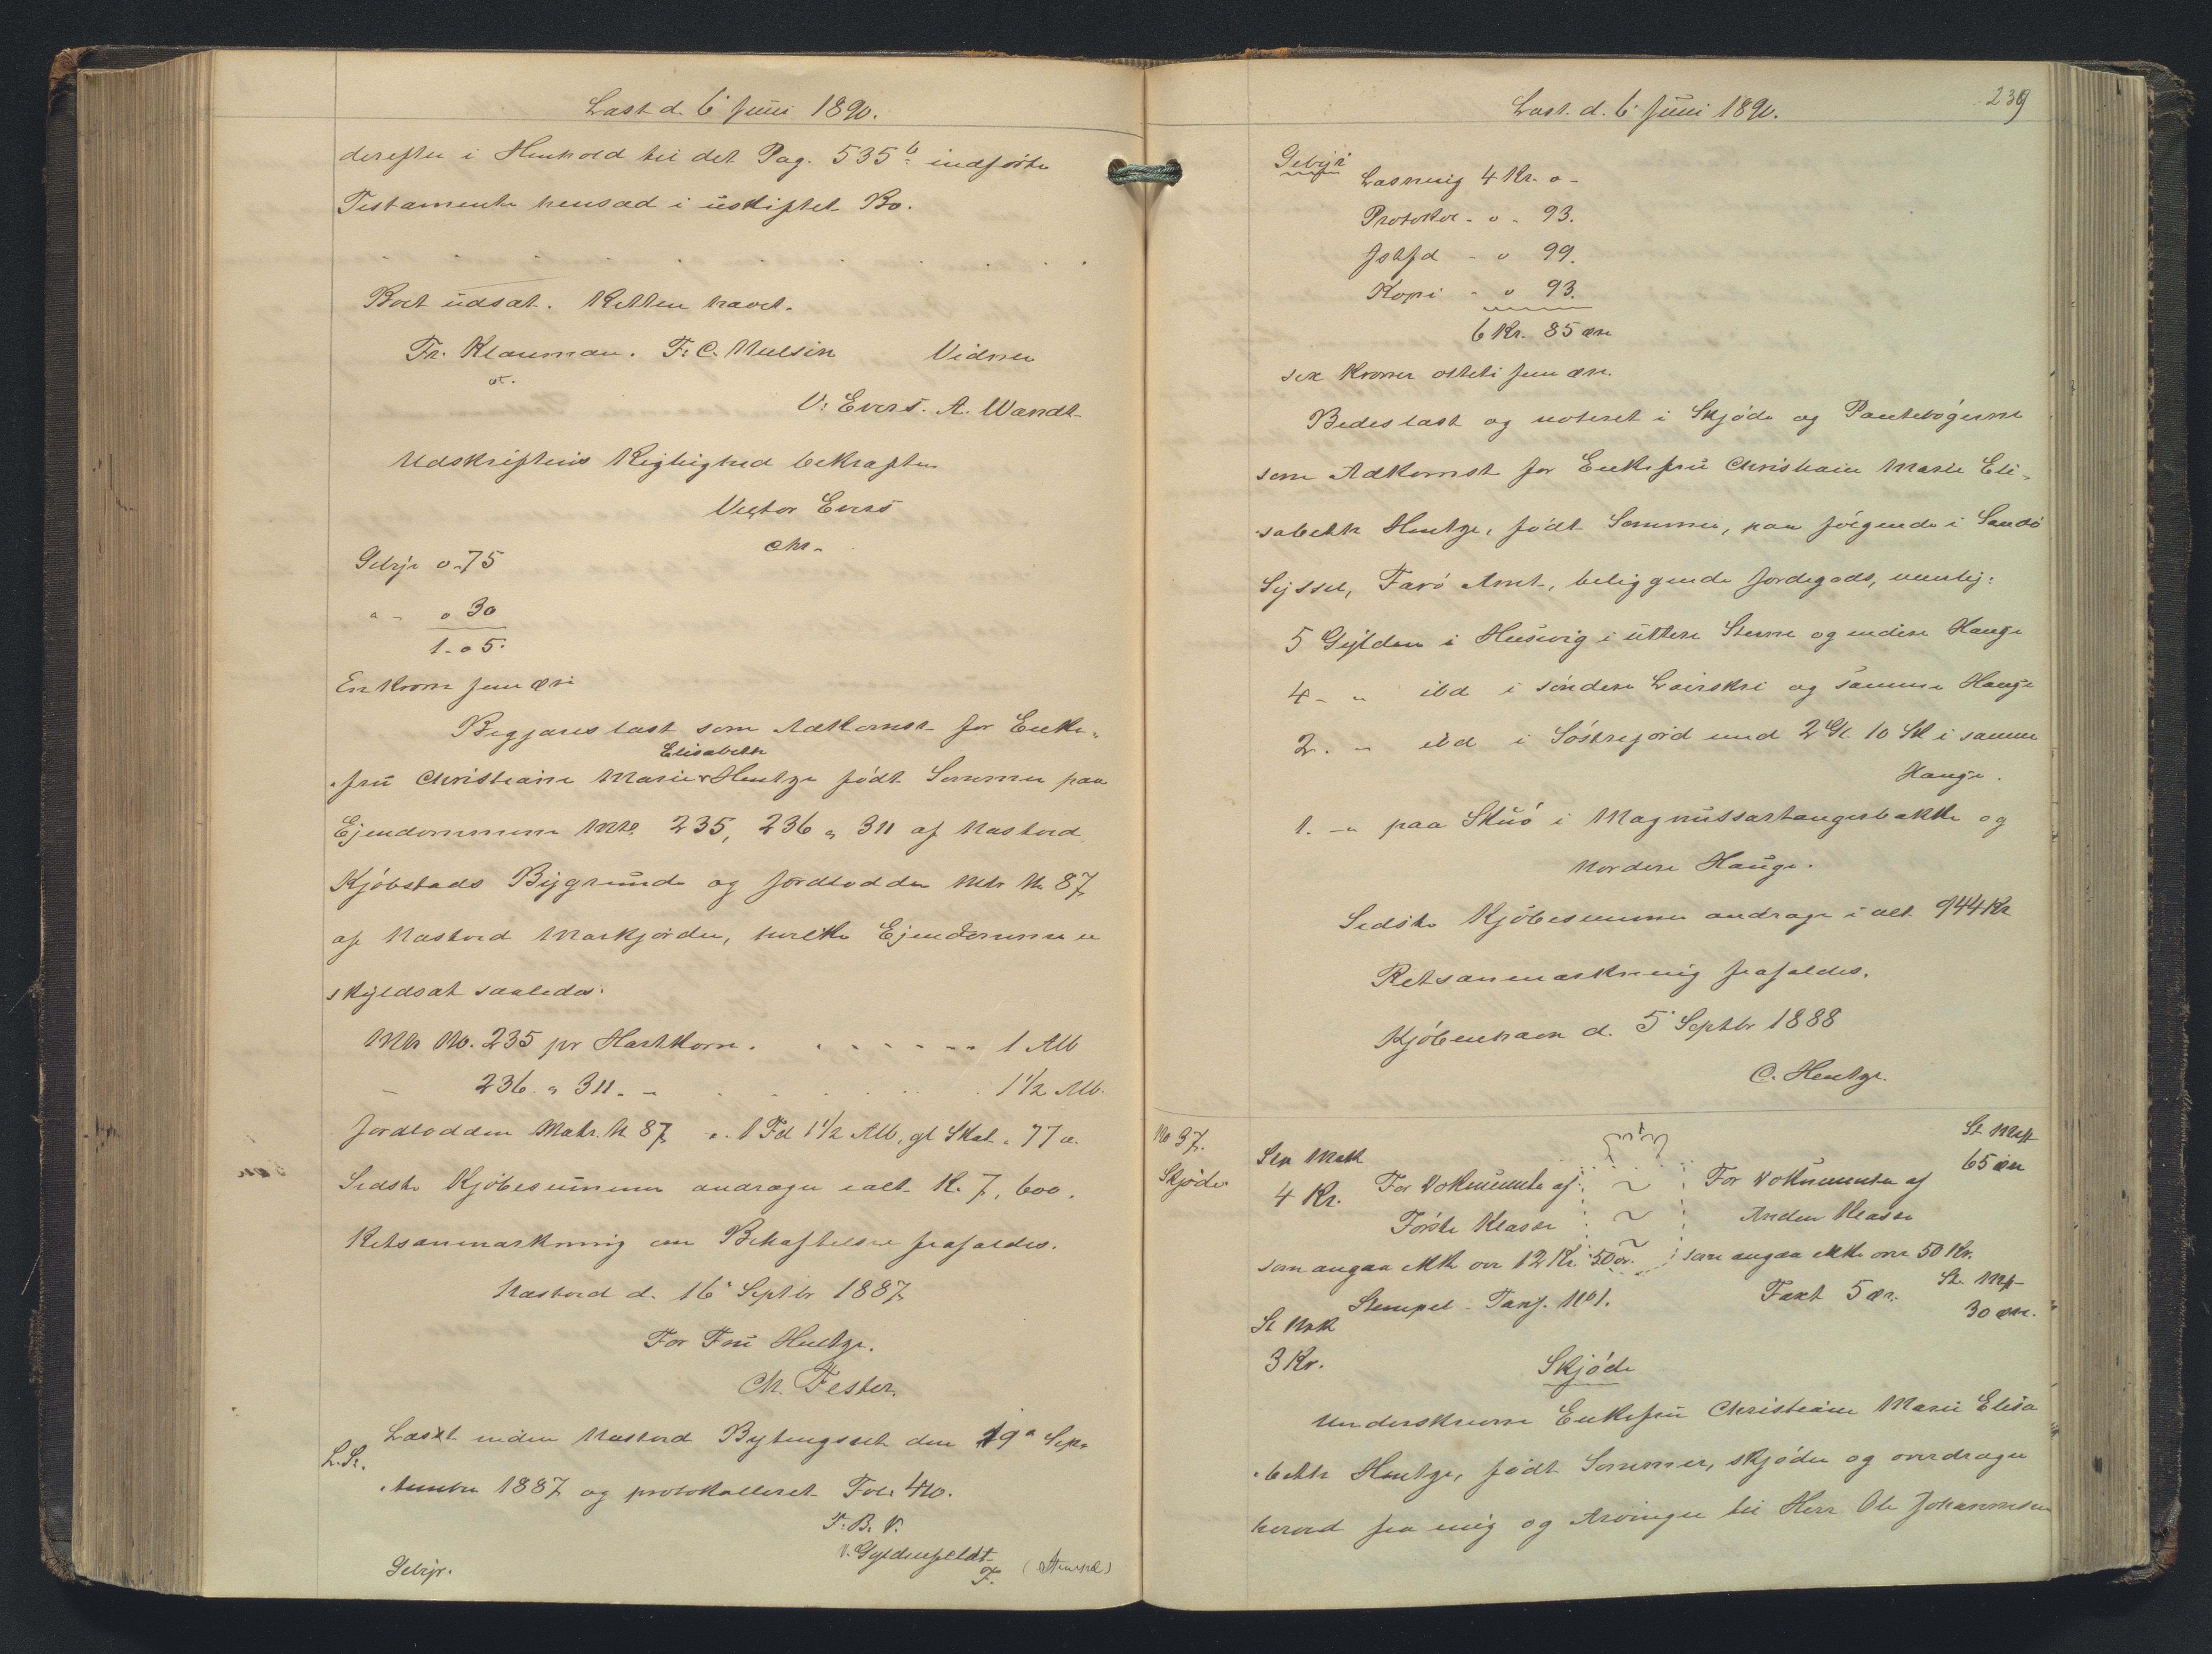 Læst d. 6' Juni 1890.
derefter i Henhold til det Pag. 535 b indførte
Testamente hensad i uskiftet Bo.
Boet udsat. Retten hævet.
Fr. Klauman. F. C. Nielsen Vidner
cst.
V. Evers. A. Wandt
Udskriftens Rigtighed bekræftes
Victor Evers
cst.
Gebyr 0-75
" - 0 30
1 - 05.
En Krone fem Øre
Begjæres læst som Adkomst for Enke-
Elisabeth
fru Christiane Marie Hentze født Sommer paa
Ejendommene Mtr. 235, 236 & 311 af Næstved
Kjøbstads Bygrunde og Jordlodden Mtr No 87
af Næstved Markjorder, hvilke Ejendomme er
skyldsat saaledes:
Mtr No. 235 pr Hartkorn . . . . . . . 1 Alb
- 236. & 311. - . . . . . 1 1/2 Alb.
Jordlodden Matr. N 87 " 1 Fd 1 1/2 Alb, gl Skat " 77 ø.
Sidste Kjøbesummer andrager ialt K. 7,600.
Retsanmærkning om Behæftelser frafaldes.
Næstved d. 16' Septbr 1887
For Fru Hentze.
Ch. Fester.
Læst inden Næstved Bytingsret den 19' Sep-
L.S.
tember 1887 og protokolleret Fol. 410.
T. B. V.
v. Gyldenfeldt
F. (Stempel)
Gebyr.
Læst. d. 6' Juni 1890.
239
Gebyr
Læsning 4 Kr. o -
Protokol - o - 93.
Justfd - o 99.
Kopi - o 93.
6 Kr. 85 Øre
sex Kroner otteti fem Øre.
Bedes læst og noteret i Skjøde og Pantebøgerne
som Adkomst for Enkefru Christiane Marie Eli-
sabeth Hentze, født Sommer, paa følgende i Sandø
Syssel, Færø Amt, beliggende Jordegods, nemlig:
5 Gylden i Husevig i uttere Sterre og nidere Hauge
4 - " ibd i søndere Loirskre og samme Hauge
2. - " ibd i Søstrejørd med 2 Gl. 10 Sk i samme
Hauge.
1. - " paa Skuø i Magnussartangerbakke og
Nordere Hauge.
Sidste Kjøbesummer andrage i alt 944 Kr
Retsanmærkning frafaldes.
Kjøbenhavn d. 5' Septbr 1888
C. Hentze.
No 37.
Skjøde.
Ste Mærk
4 Kr.
For Dokumenter af
Første Klasse
som angaa ikke over 12 Kr. 50 ør.
Stempel-Tarif. No 1.
St. Mrk
65 Øre
For Dokumenter af
Anden Klasse
som angaa ikke over 50 Kr.
Taxt 5 ør.
St. Mrk
30 øre.
St Mrk
3 Kr.
Skjøde
Underskrevne Enkefru Christiane Marie Elisa
beth Hentze, født Sommer, skjøder og overdrager
herved fra mig og Arvinger til Herr Ole Johannesen